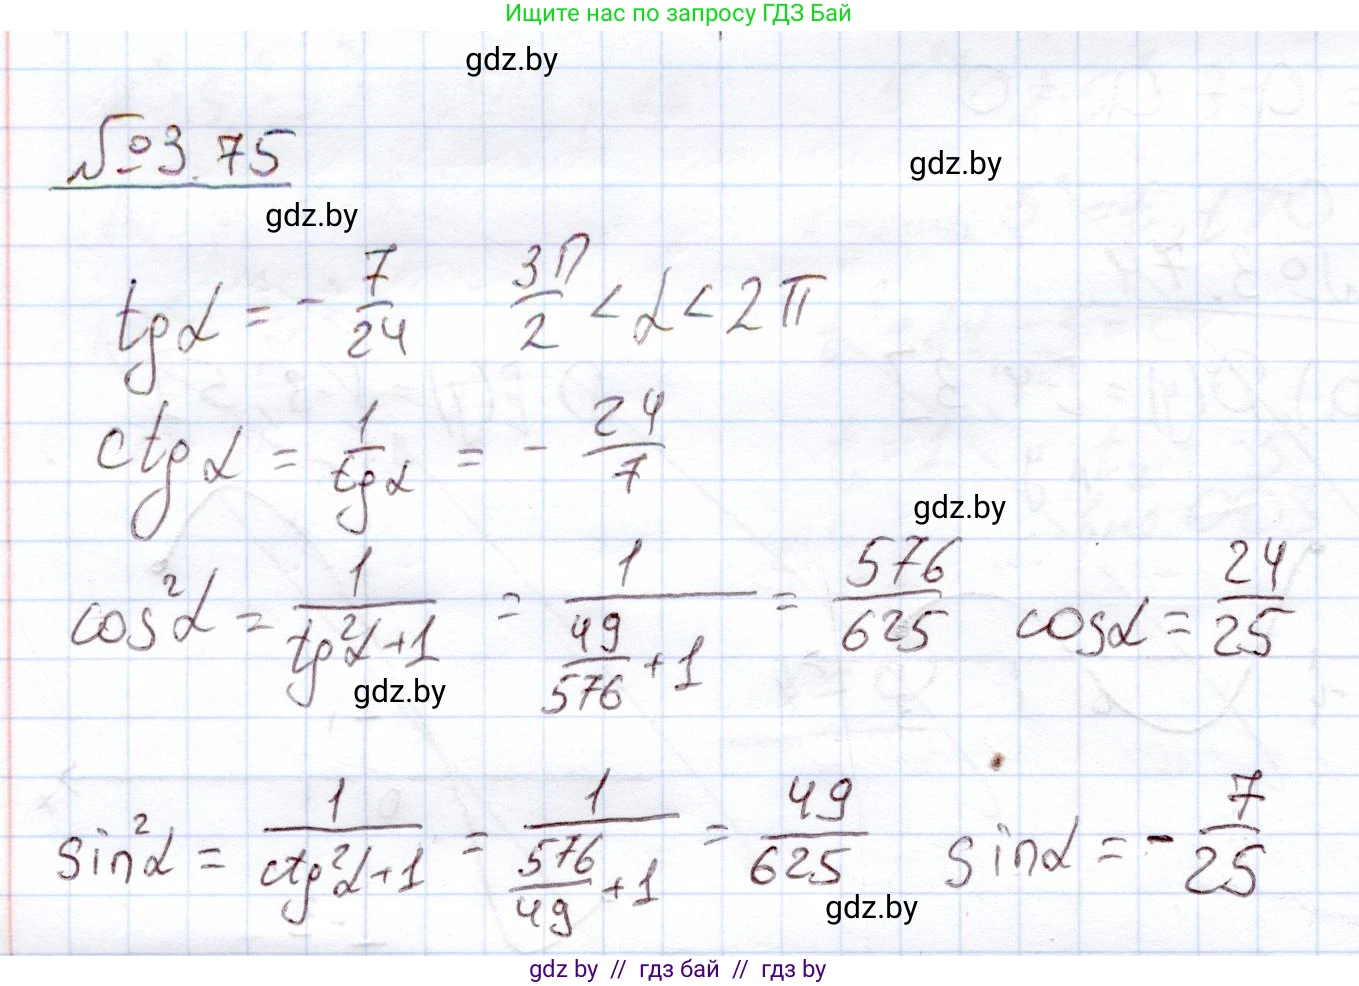 Ищите нас по запросу ГДЗ Бай
gdz.by
№3.75
gdz.by
gdz.by
tgα = - 7/24    3π/2 < α < 2π
ctgα = 1/tgα = - 24/7
gdz.by
cos²α = 1/(tg²α+1) = 1/(49/576 + 1) = 576/625    cosα = 24/25
gdz.by
sin²α = 1/(ctg²α+1) = 1/(576/49 + 1) = 49/625    sinα = - 7/25
gdz.by
gdz by // гдз бай // гдз by